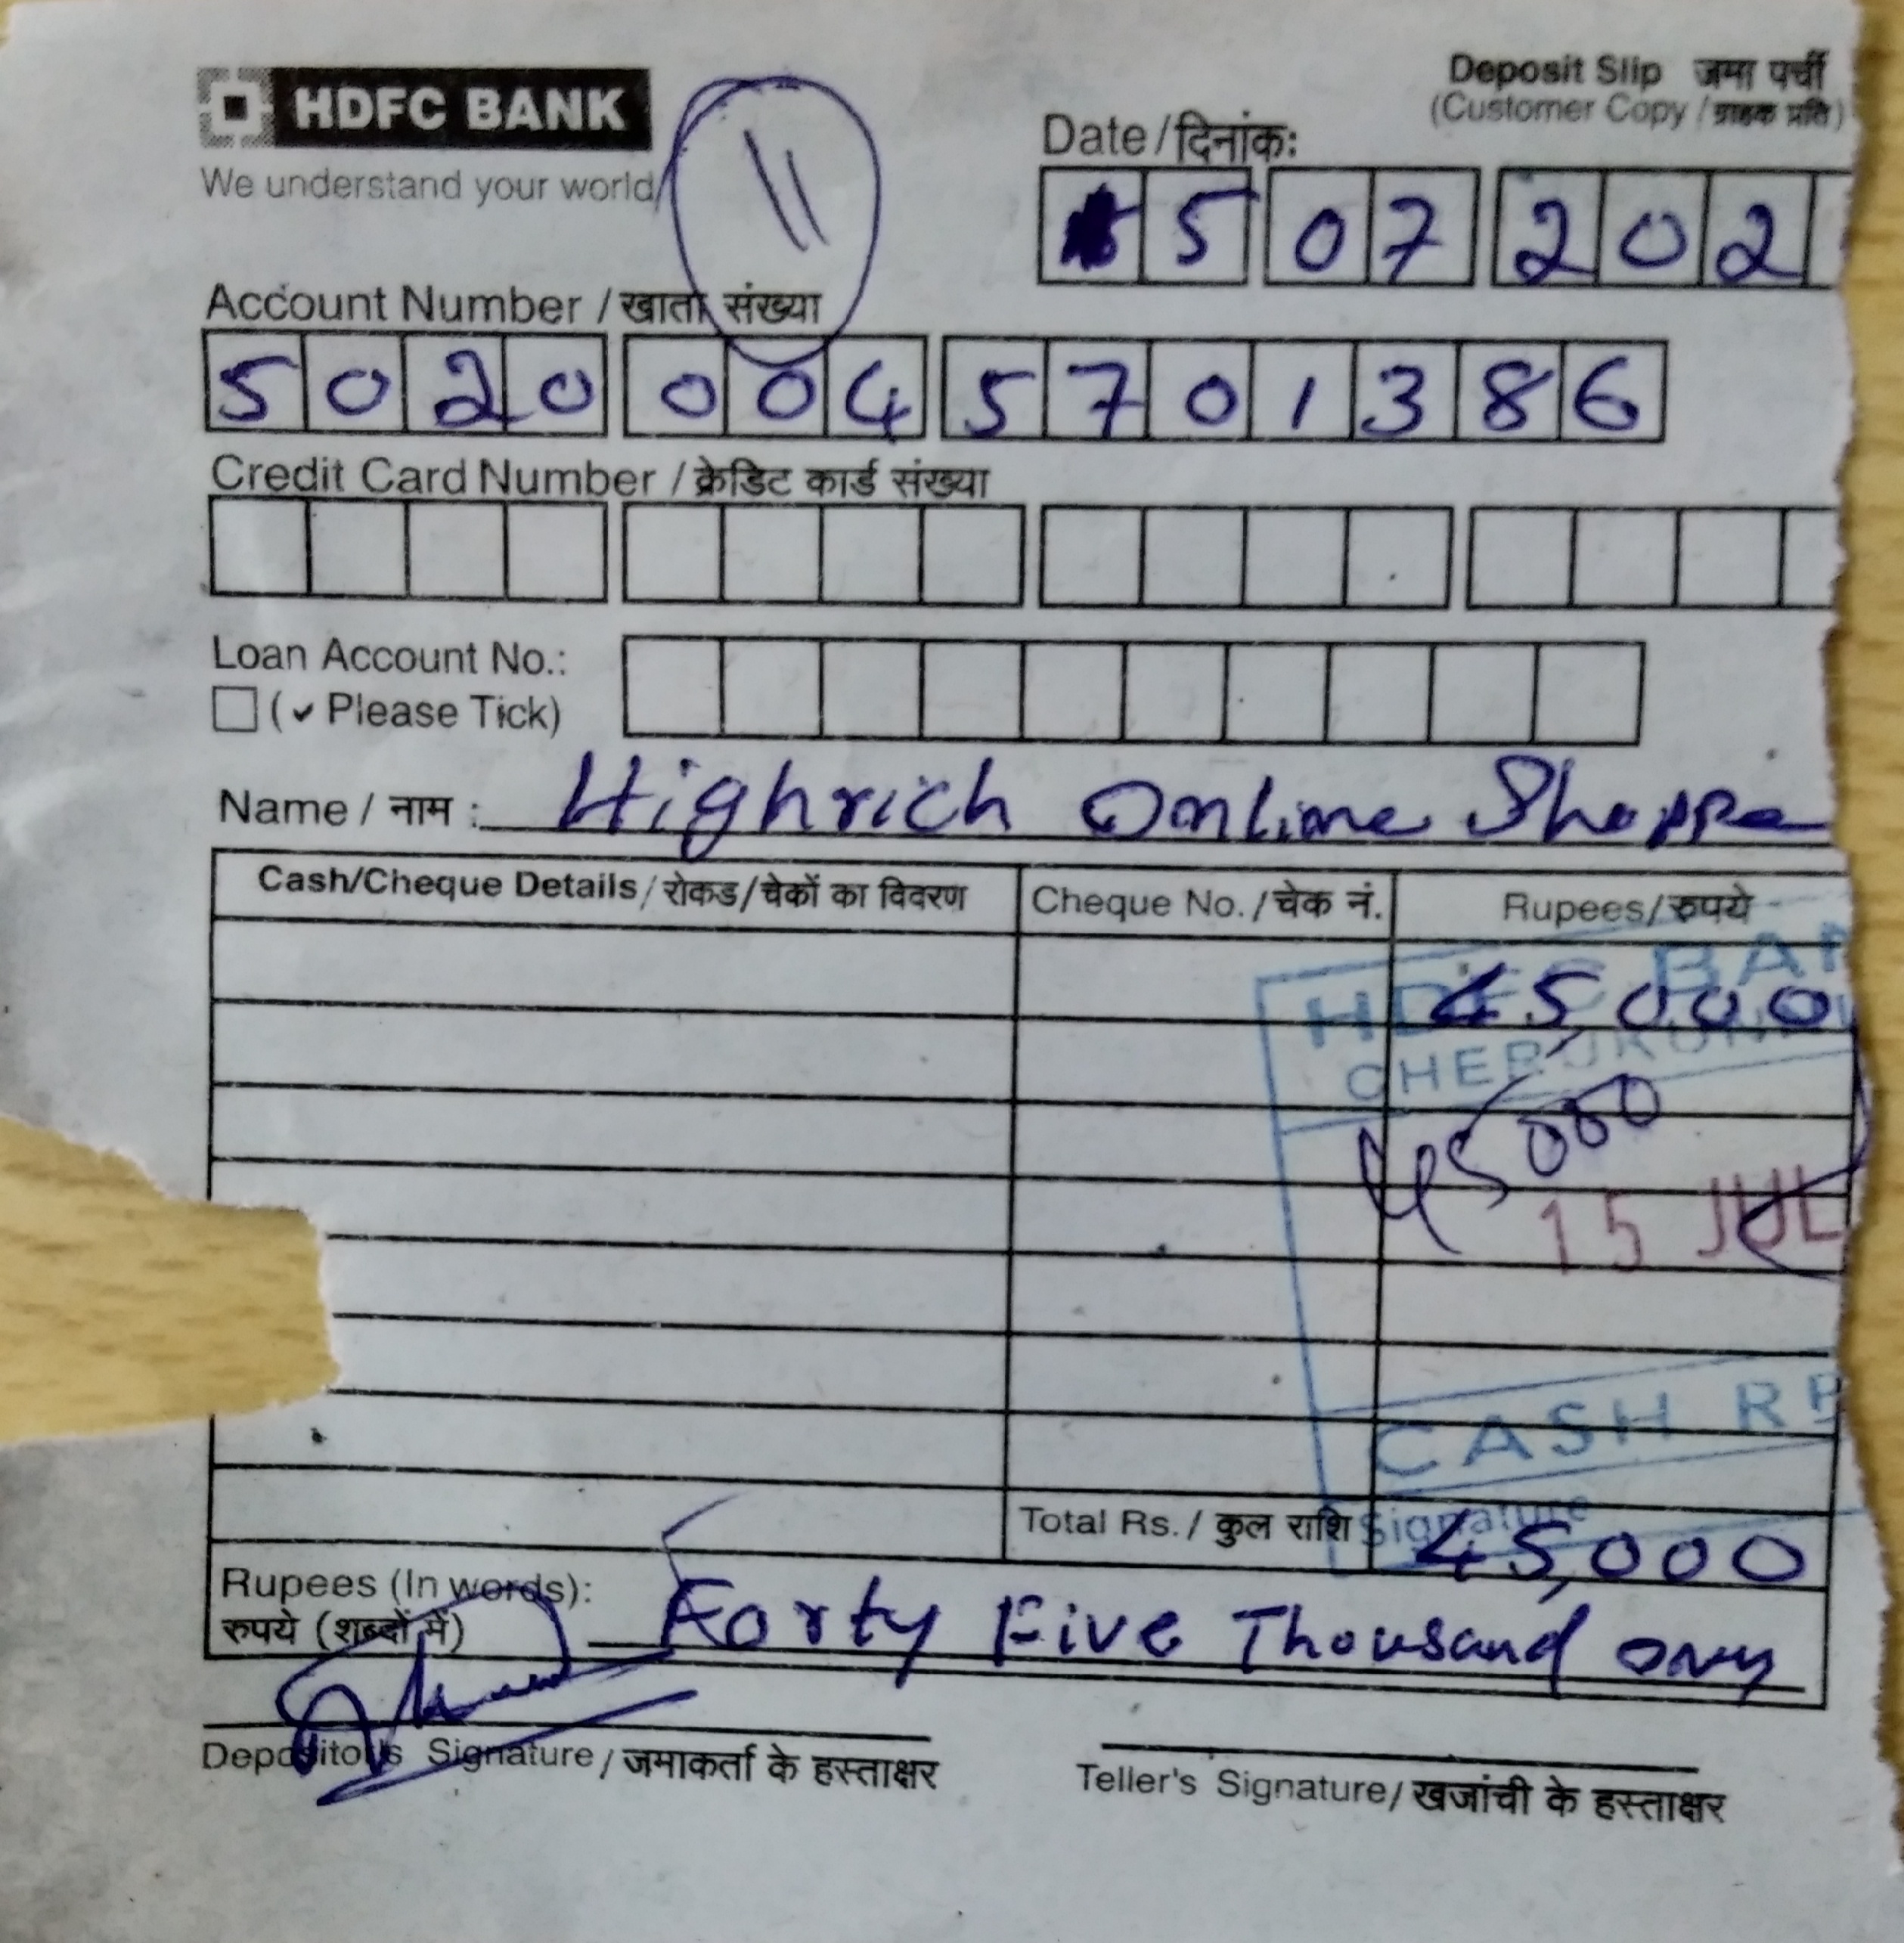 HDFC BANK
We understand your world
Deposit Slip जमा पर्ची
(Customer Copy / ग्राहक प्रति)
Date / दिनांक:
5 07 202
11
Account Number / खाता संख्या
5020 004 5701386
Credit Card Number / क्रेडिट कार्ड संख्या
Loan Account No.:
(✓ Please Tick)
Name / नाम : Highrich Online Shoppe
Cash/Cheque Details / रोकड/चेकों का विवरण Cheque No. / चेक नं. Rupees/रुपये
HDFC BAN
45,000
45000
15 JUL
CASH RE
Signature
Total Rs. / कुल राशि 45,000
Rupees (In words):
रुपये (शब्दों में) Forty Five Thousand only
Depositor's Signature / जमाकर्ता के हस्ताक्षर
Teller's Signature/ खजांची के हस्ताक्षर